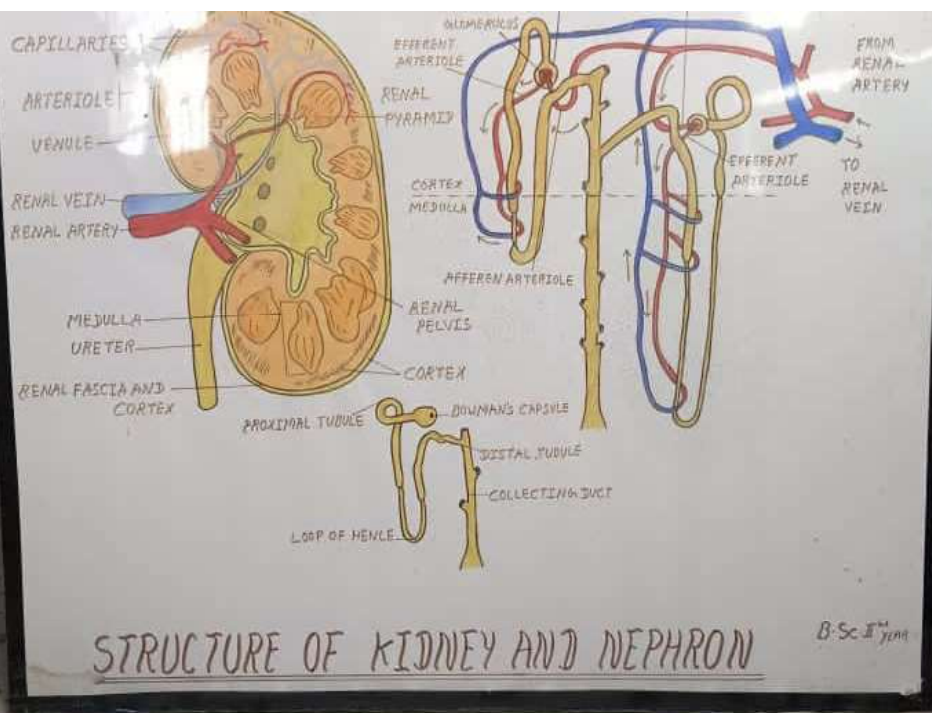 CAPILLARIES
ARTERIOLE
VENULE
RENAL VEIN
RENAL ARTERY
MEDULLA
URETER
RENAL FASCIA AND
CORTEX
RENAL
PYRAMID
RENAL
PELVIS
CORTEX
GLOMERULOS
EFFERENT
ARTERIOLE
CORTEX
MEDULLA
AFFEREN ARTERIOLE
FROM
RENAL
ARTERY
EFFERENT
ARTERIOLE
TO
RENAL
VEIN
PROXIMAL TUBULE
BOWMAN'S CAPSULE
DISTAL TUBULE
COLLECTING DUCT
LOOP OF HENLE
STRUCTURE OF KIDNEY AND NEPHRON
B.Sc IInd YEAR